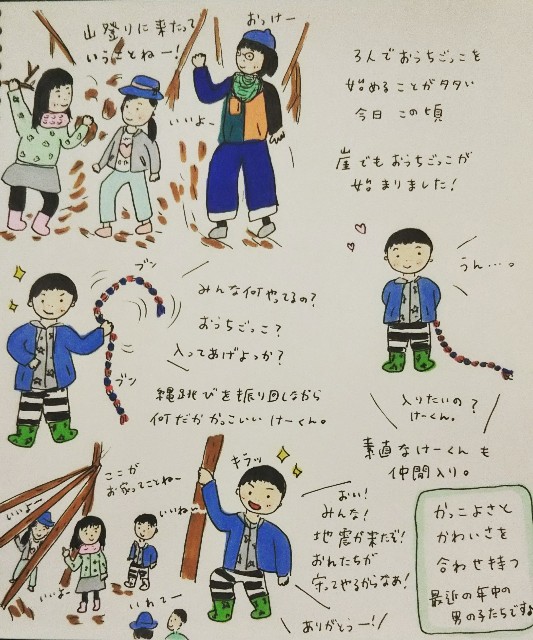 山登りに来たって
いうことねー!
おっけー
いいよ。
3人でおうちごっこを
始めることが多い
今日この頃
崖でもおうちごっこが
始まりました!
ブン
ブン
みんな何やってるの?
おうちごっこ?
入ってあげよっか?
縄跳びを振り回しながら
何だかかっこいいけーくん。
うん…。
入りたいの?
けーくん。
素直なけーくんも
仲間入り。
ここが
お家ってことねー
いいよー
いいねー
いいよー
いれてー
キラッ
おい!
みんな!
地震が来たぞ!
おれたちが
守ってやるからなあ!
ありがとうー!
かっこよさと
かわいさを
合わせ持つ
最近の年中の
男の子たちですよ